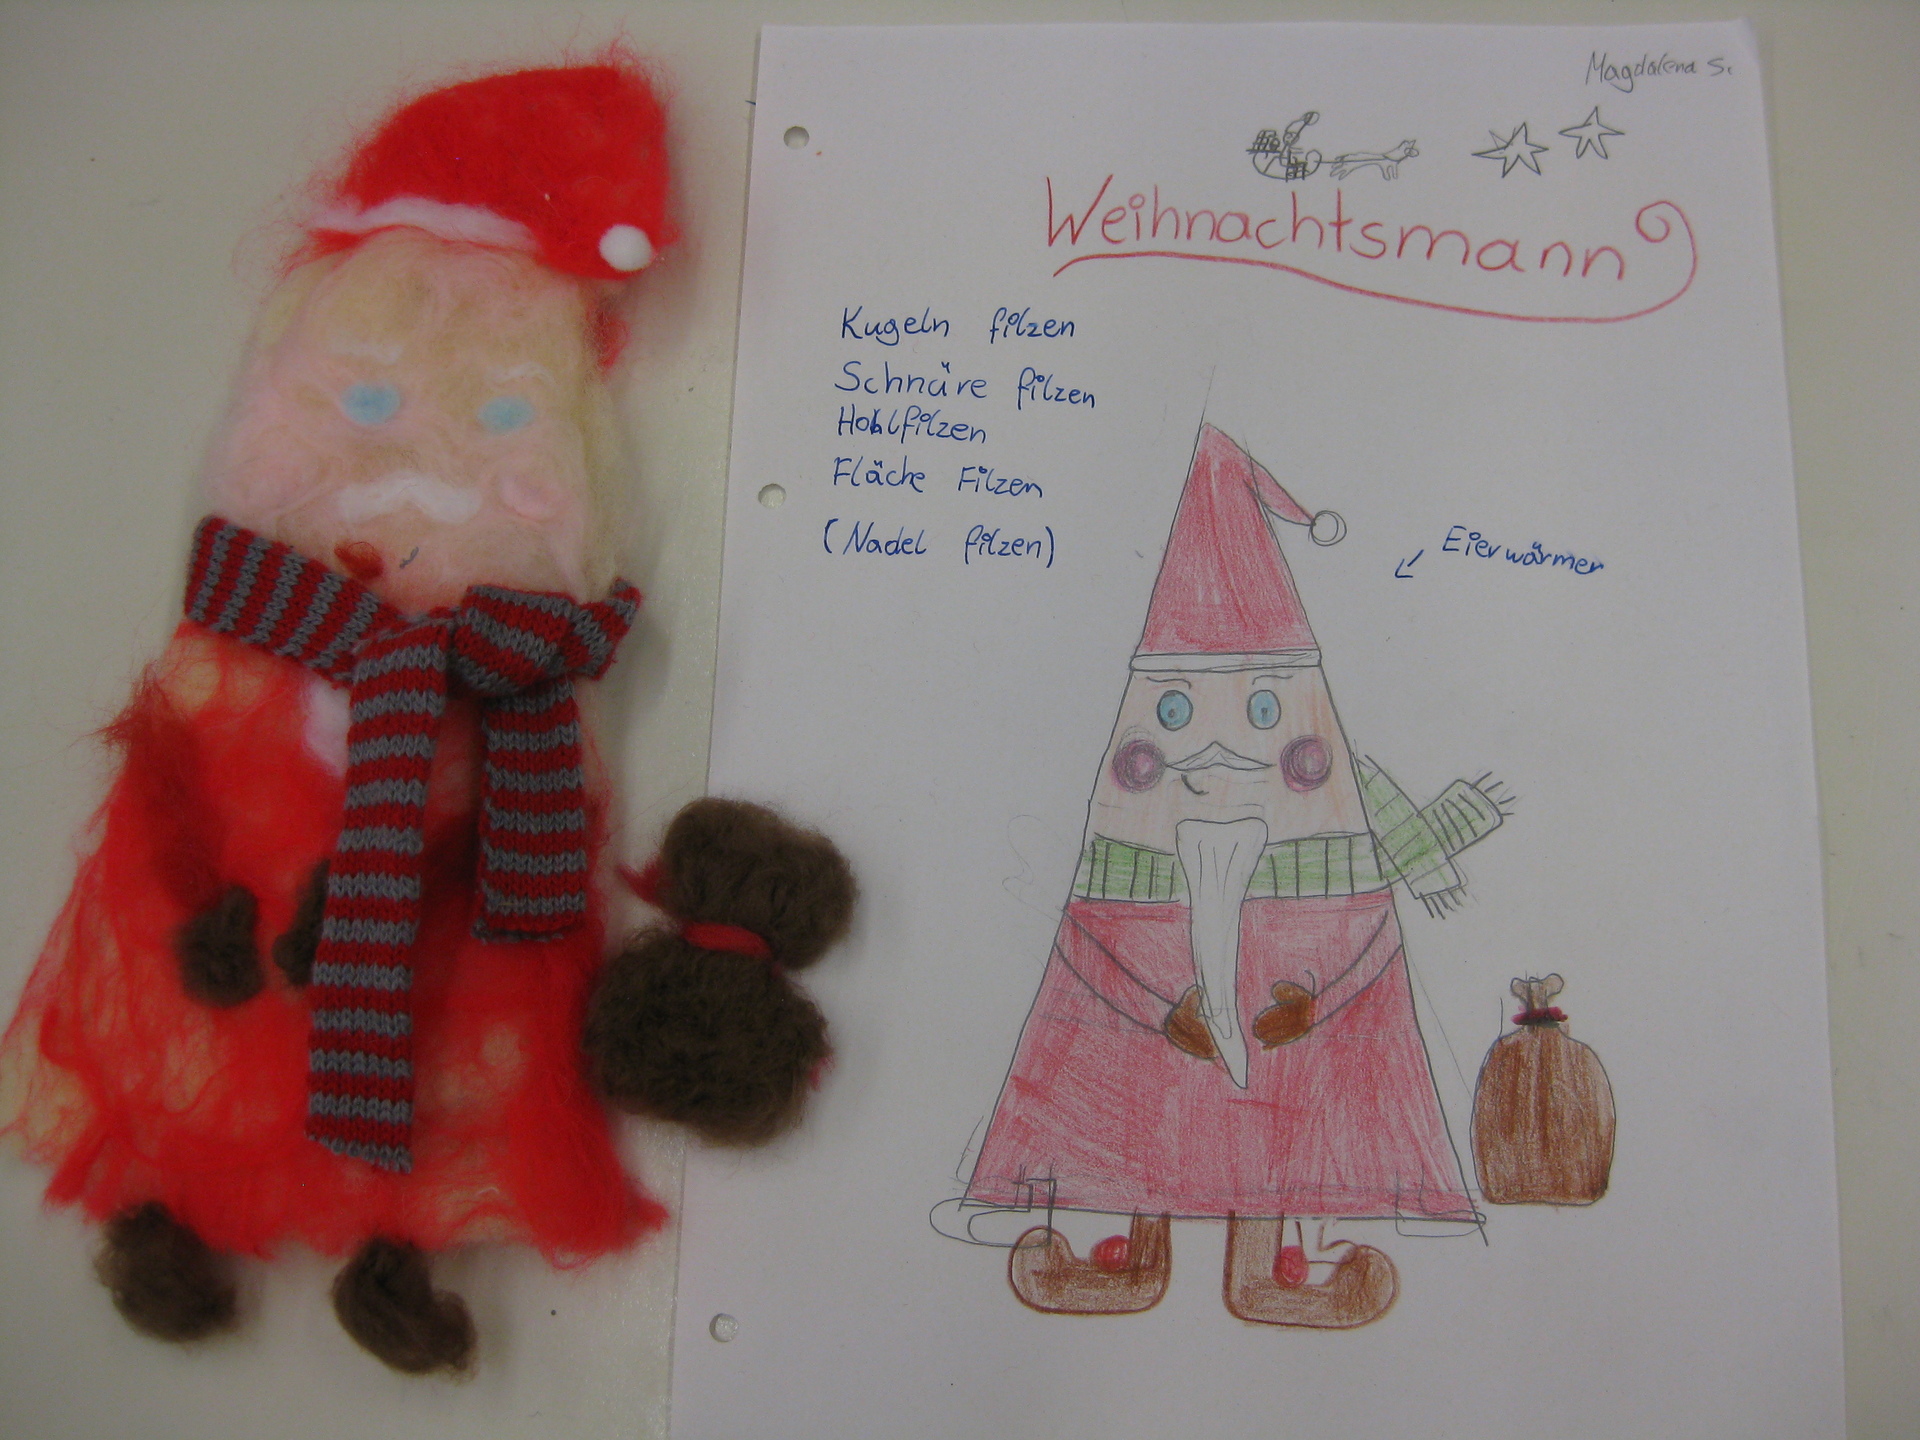 Magdalena S.
Weihnachtsmann
Kugeln filzen
Schnüre filzen
Hohlfilzen
Fläche Filzen
(Nadel filzen)
Eierwärmer